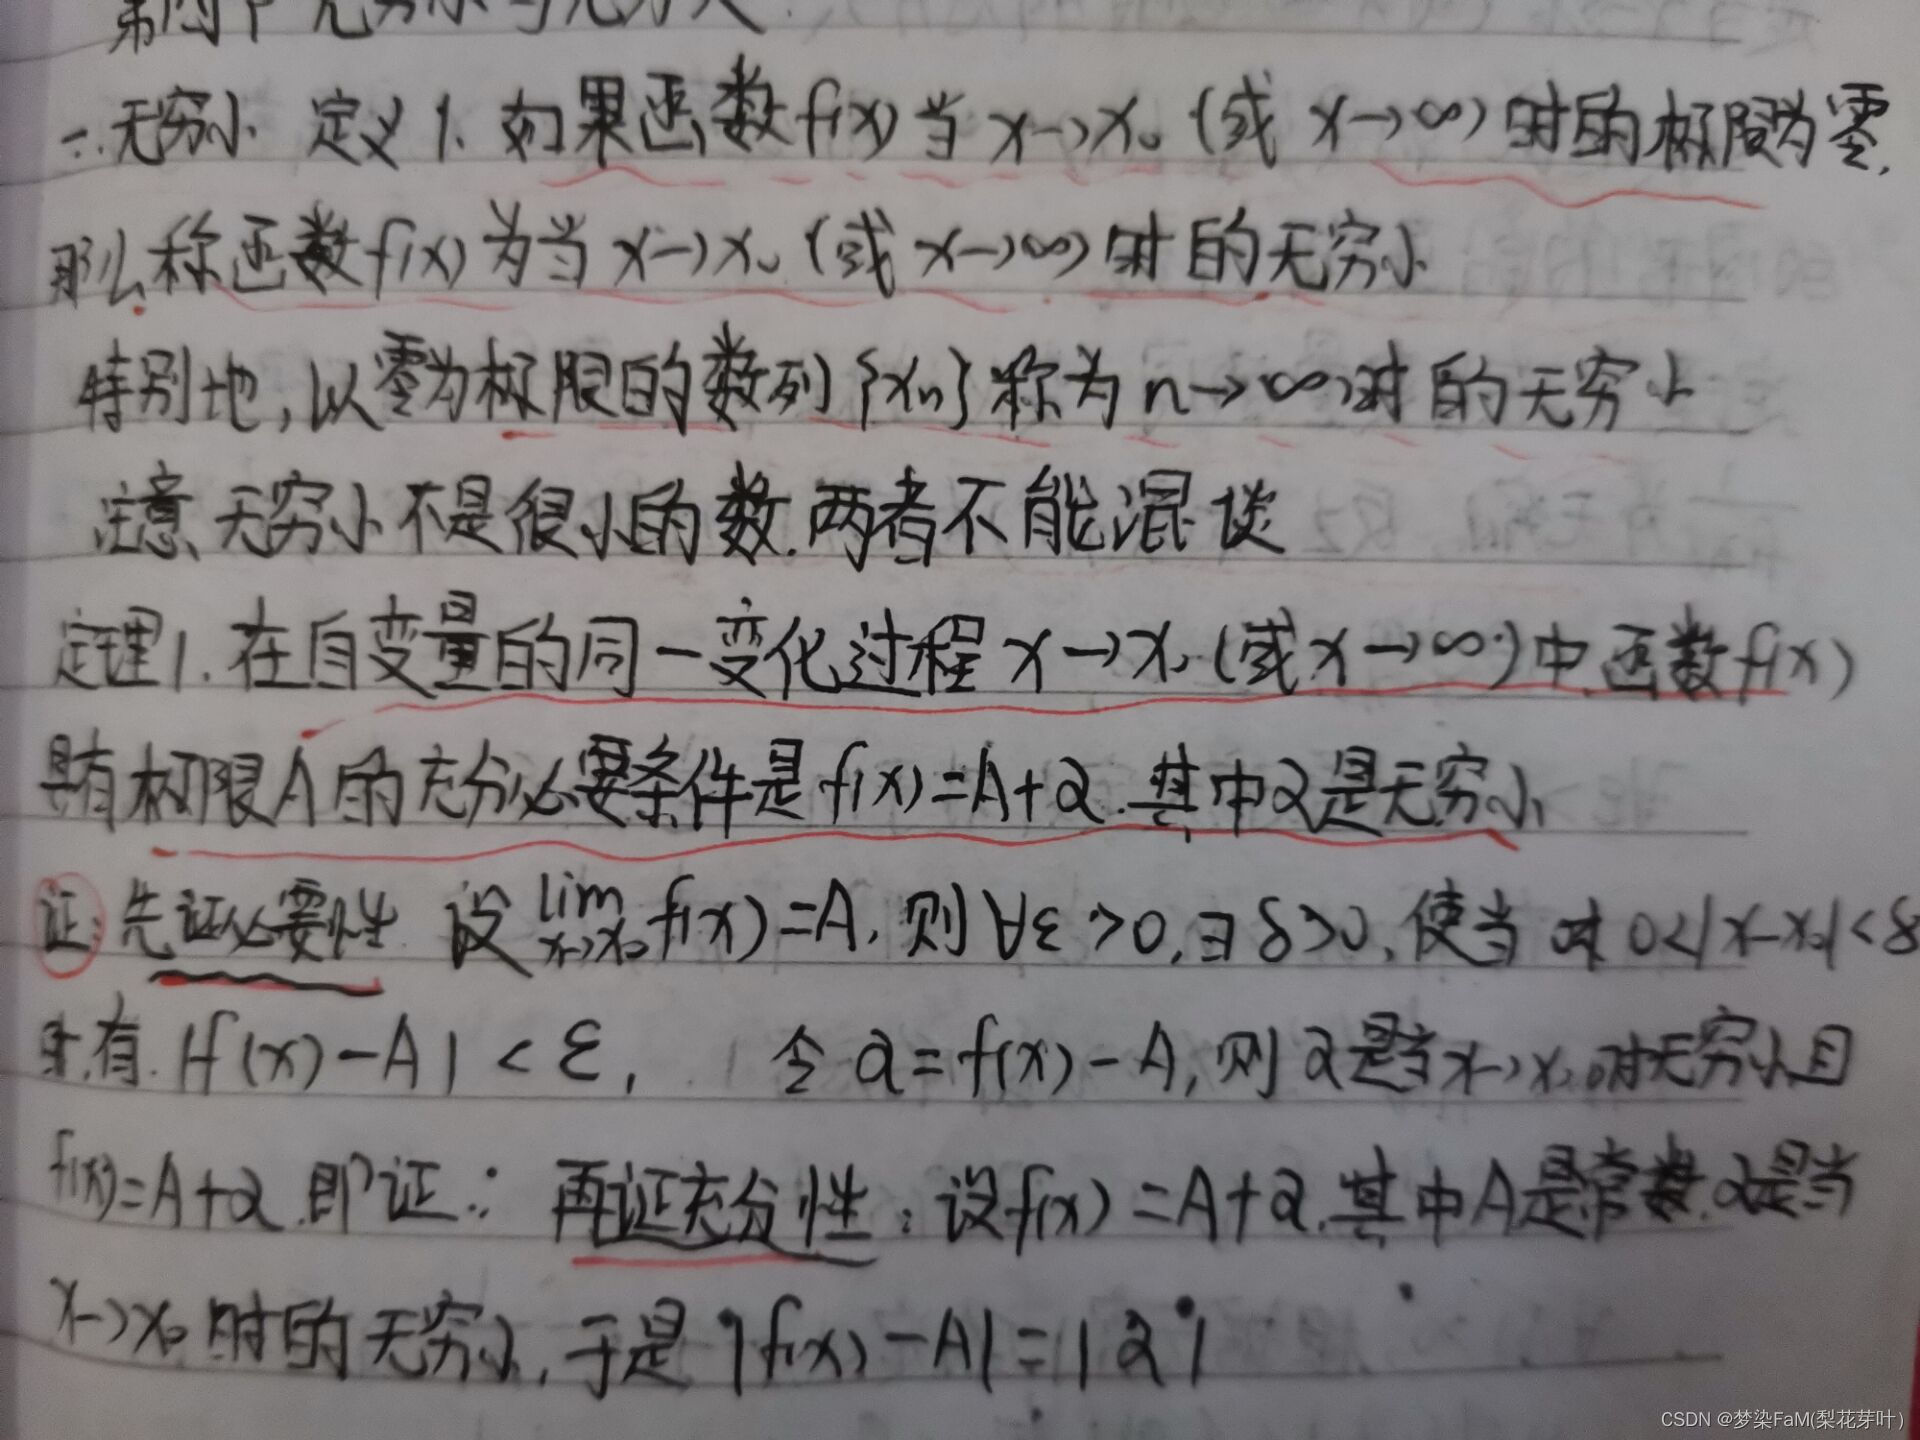 第四节 无穷小与无穷大
一. 无穷小 定义1. 如果函数f(x)当x→x₀(或x→∞)时的极限为零,
那么称函数f(x)为当x→x₀(或x→∞)时的无穷小
特别地,以零为极限的数列{xn}称为n→∞时的无穷小
注意 无穷小不是很小的数.两者不能混谈
定理1. 在自变量的同一变化过程x→x₀(或x→∞)中.函数f(x)
具有极限A的充分必要条件是f(x)=A+α.其中α是无穷小
证: 先证必要性 设lim x→x₀ f(x)=A,则∀ε>0,∃δ>0,使当 0<|x-x₀|<δ
时.有.|f(x)-A|<ε, 令α=f(x)-A,则α是当x→x₀时无穷小且
f(x)=A+α.即证∴ 再证充分性: 设f(x)=A+α.其中A是常数.α是当
x→x₀时的无穷小,于是|f(x)-A|=|α|
CSDN @梦染FaM(梨花芽叶)